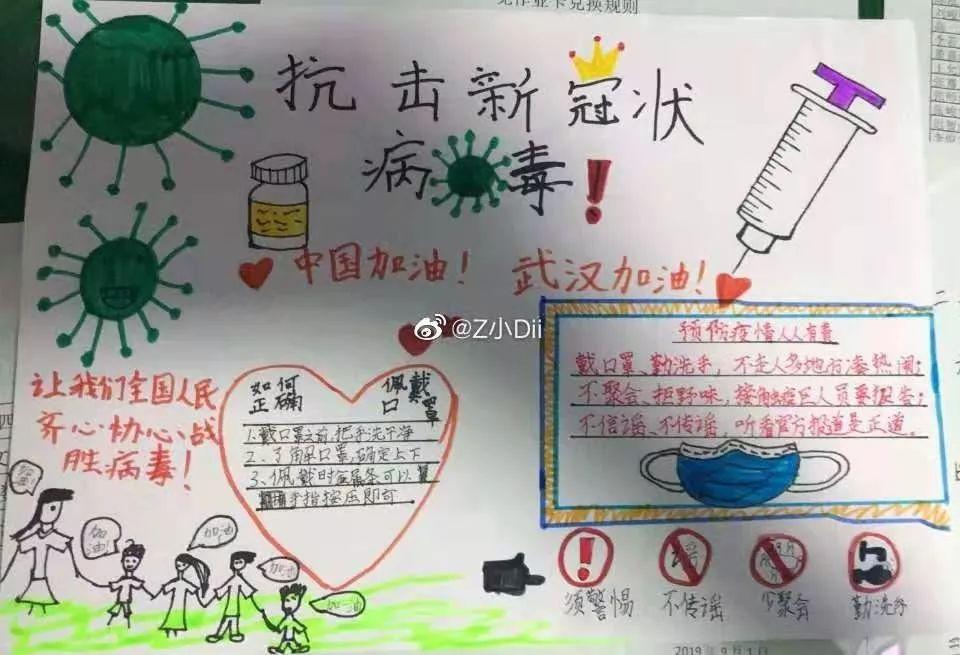 免作业卡兑换规则
抗击新冠状
病毒!
中国加油! 武汉加油!
@Z小Dii
预防疫情人人有责
戴口罩、勤洗手,不走人多地方凑热闹;
不聚会、拒野味,接触疫区人员要报告;
不信谣、不传谣,听看官方报道是正道。
让我们全国人民
齐心协心、战
胜病毒!
如何 佩戴
正确 口罩
1、戴口罩之前,把手洗干净
2、了解口罩,确定上下
3、佩戴时金属条可以
手指按压即可
加油!
加油
加油
加油
须警惕 不传谣 少聚会 勤洗手
2019年9月1